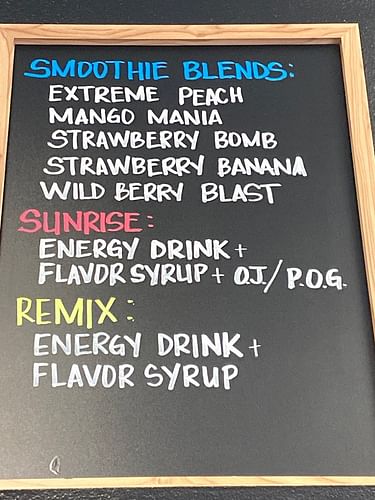 SMOOTHIE BLENDS:
EXTREME PEACH
MANGO MANIA
STRAWBERRY BOMB
STRAWBERRY BANANA
WILD BERRY BLAST
SUNRISE:
ENERGY DRINK +
FLAVOR SYRUP + O.J./P.O.G.
REMIX:
ENERGY DRINK +
FLAVOR SYRUP